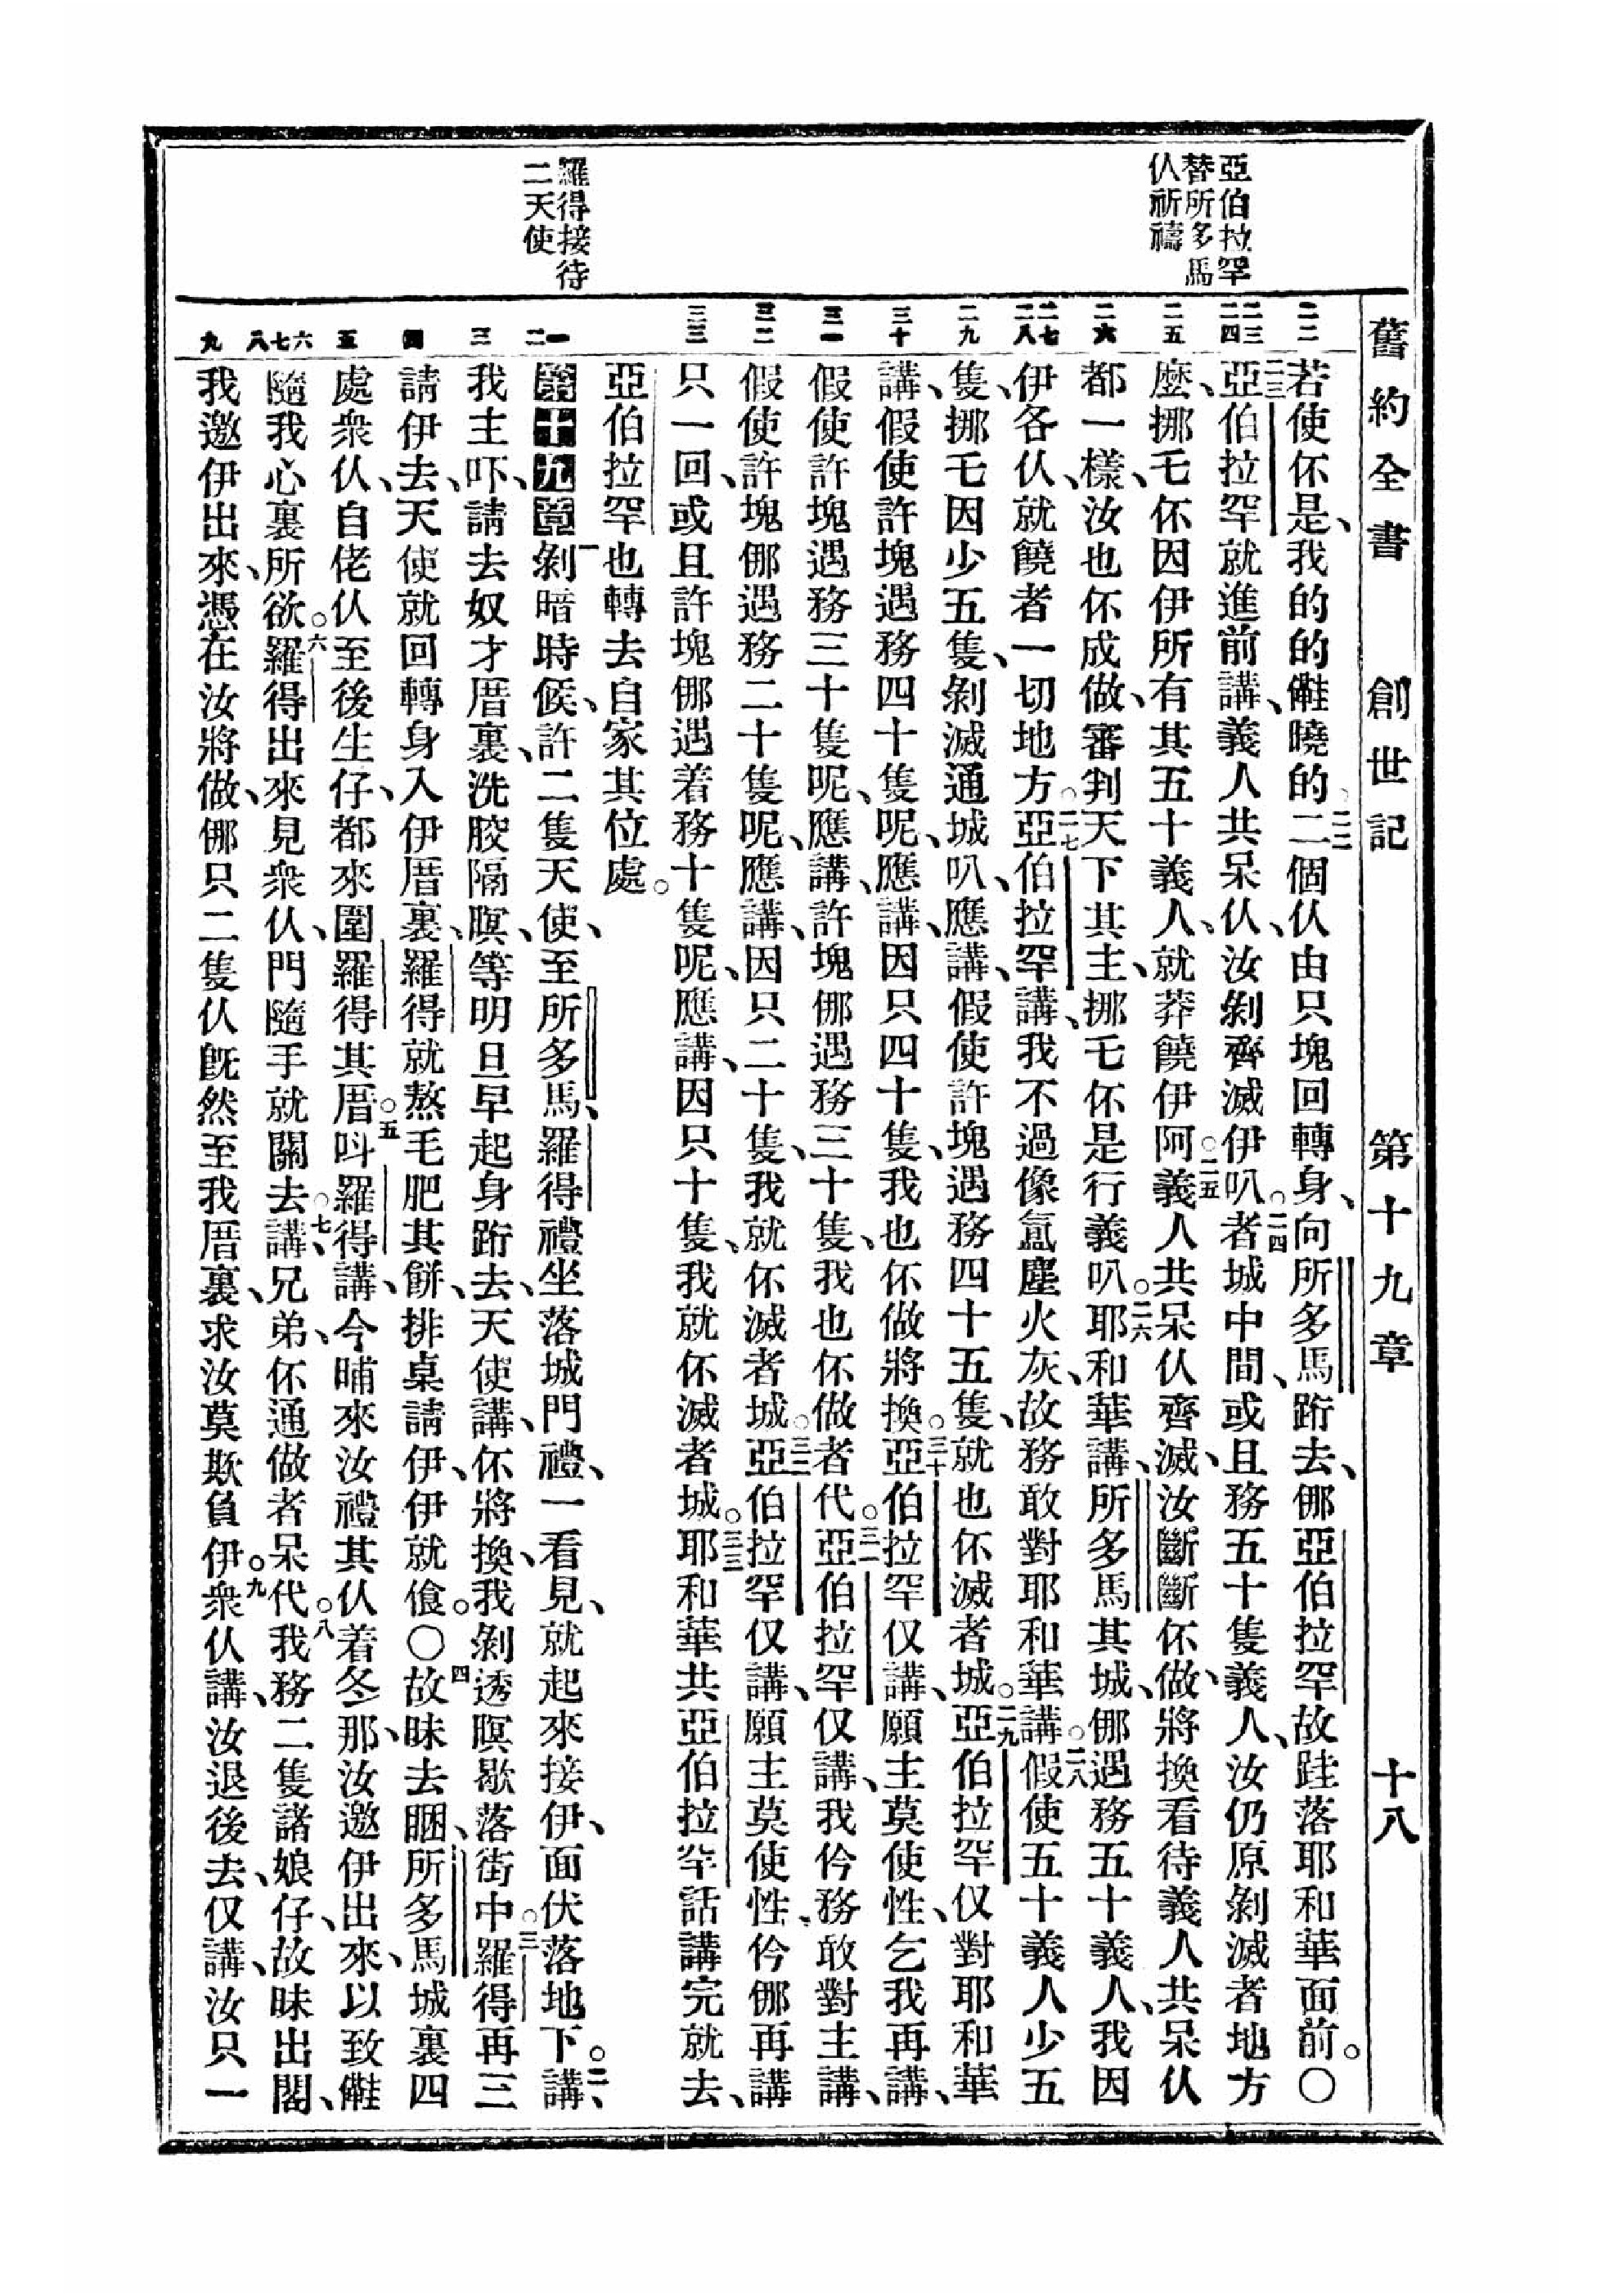 舊約全書　創世記　第十九章　十八
亞伯拉罕
替所多馬
仈祈禱
羅得接待
二天使
二二
二三
二四
二五
二六
二七
二八
二九
三十
三一
三二
三三
一
二
三
四
五
六
七
八
九
若使伓是、我的的䧹曉的。二二個仈由只塊回轉身、向所多馬跔去、㑚亞伯拉罕故跬落耶和華面前。〇
二三亞伯拉罕就進前講、義人共呆仈、汝剝齊滅伊叭。二四者城中間、或且務五十隻義人、汝仍原剝滅者地方
麽、挪乇伓因伊所有其五十義人、就莽饒伊阿。二五義人共呆仈齊滅、汝斷斷伓做、將換看待義人、共呆仈
都一樣、汝也伓成做、審判天下其主、挪乇伓是行義叭。二六耶和華講、所多馬其城、㑚遇務五十義人、我因
伊各仈、就饒者一切地方。二七亞伯拉罕講、我不過像氳塵火灰、故務敢對耶和華講。二八假使五十義人少五
隻、挪乇因少五隻、剝滅通城叭、應講、假使許塊遇務四十五隻、就也伓滅者城。二九亞伯拉罕仅對耶和華
講、假使許塊遇務四十隻呢、應講、因只四十隻、我也伓做將換。三十亞伯拉罕仅講、願主莫使性、乞我再講、
假使許塊遇務三十隻呢、應講、許塊㑚遇務三十隻、我也伓做者代。三一亞伯拉罕仅講、我仱務敢對主講、
假使許塊㑚遇務二十隻呢、應講、因只二十隻、我就伓滅者城。三二亞伯拉罕仅講、願主莫使性、仱㑚再講
只一回、或且許塊㑚遇着務十隻呢、應講、因只十隻、我就伓滅者城。三三耶和華共亞伯拉罕話講完就去、
亞伯拉罕也轉去自家其位處。
第十九章一剝暗時候、許二隻天使、至所多馬、羅得禮坐落城門禮、一看見、就起來接伊、面伏落地下。二講、
我主吓、請去奴才厝裏、洗胶隔暝、等明旦早起身跔去、天使講、伓將換、我剝透暝歇落街中。三羅得再三
請伊去、天使就回轉身、入伊厝裏、羅得就熬毛肥其餅、排桌請伊、伊就飧。〇四故昧去睏、所多馬城裏四
處衆仈、自佬仈至後生仔、都來圍羅得其厝。五呌羅得講、今晡來汝禮其仈着冬那、汝邀伊出來、以致䧹
隨我心裏所欲。六羅得出來見衆仈、門隨手就關去。七講、兄弟伓通做者呆代。八我務二隻諸娘仔、故昧出閣、
我邀伊出來、憑在汝將做、㑚只二隻仈旣然至我厝裏、求汝莫欺負伊。九衆仈講、汝退後去、仅講、汝只一